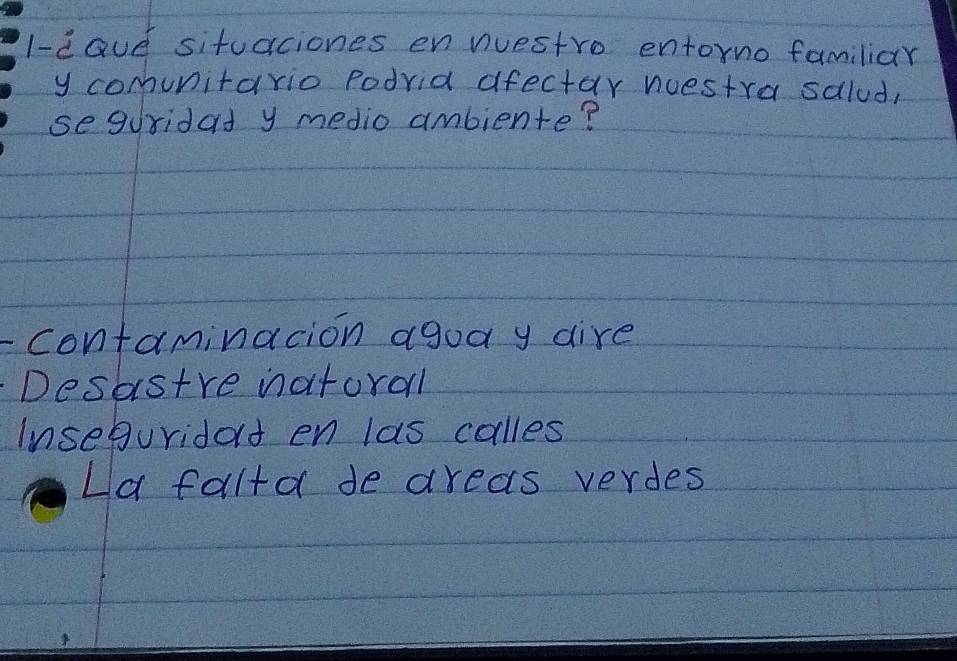 1-¿Qué situaciones en nuestro entorno familiar
y comunitario Podria afectar nuestra salud,
seguridad y medio ambiente?
-contaminación agua y aire
-Desastre natural
Inseguridad en las calles
La falta de areas verdes